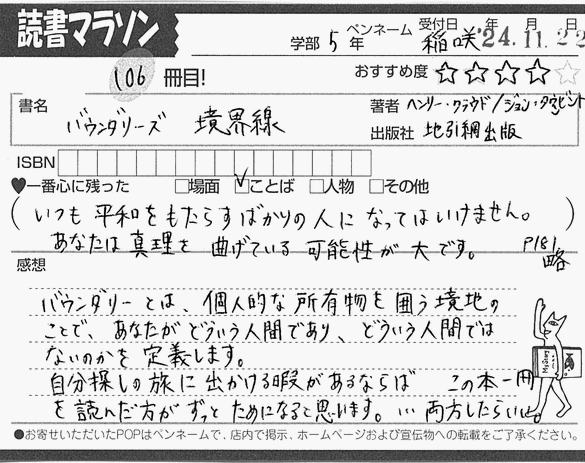 読書マラソン
学部 5年 ペンネーム 稲咲 受付日 '24.11.22 年 月 日
106 冊目! おすすめ度 ☆☆☆☆☆
書名 バウンダリーズ 境界線
著者 ヘンリー・クラウド/ジョン・タウンゼント
出版社 地引網出版
ISBN
♥一番心に残った □場面 ☑ことば □人物 □その他
(いつも平和をもたらすばかりの人になってはいけません。
あなたは真理を曲げている可能性が大です。 P181 略)
感想
バウンダリーとは、個人的な所有物を囲う境地の
ことで、あなたがどういう人間であり、どういう人間では
ないのかを定義します。
自分探しの旅に出かける暇があるならば この本一冊
を読んだ方がずっとためになると思います。… 両方したらいい。
●お寄せいただいたPOPはペンネームで、店内で掲示、ホームページおよび宣伝物への転載をご了承ください。